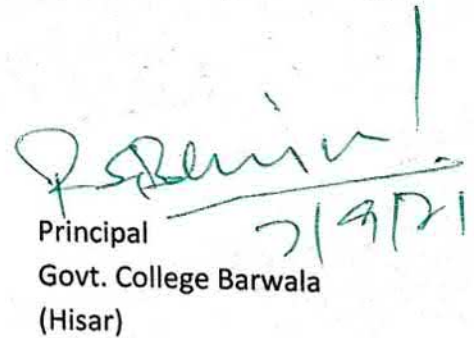 7/9/21
Principal
Govt. College Barwala
(Hisar)